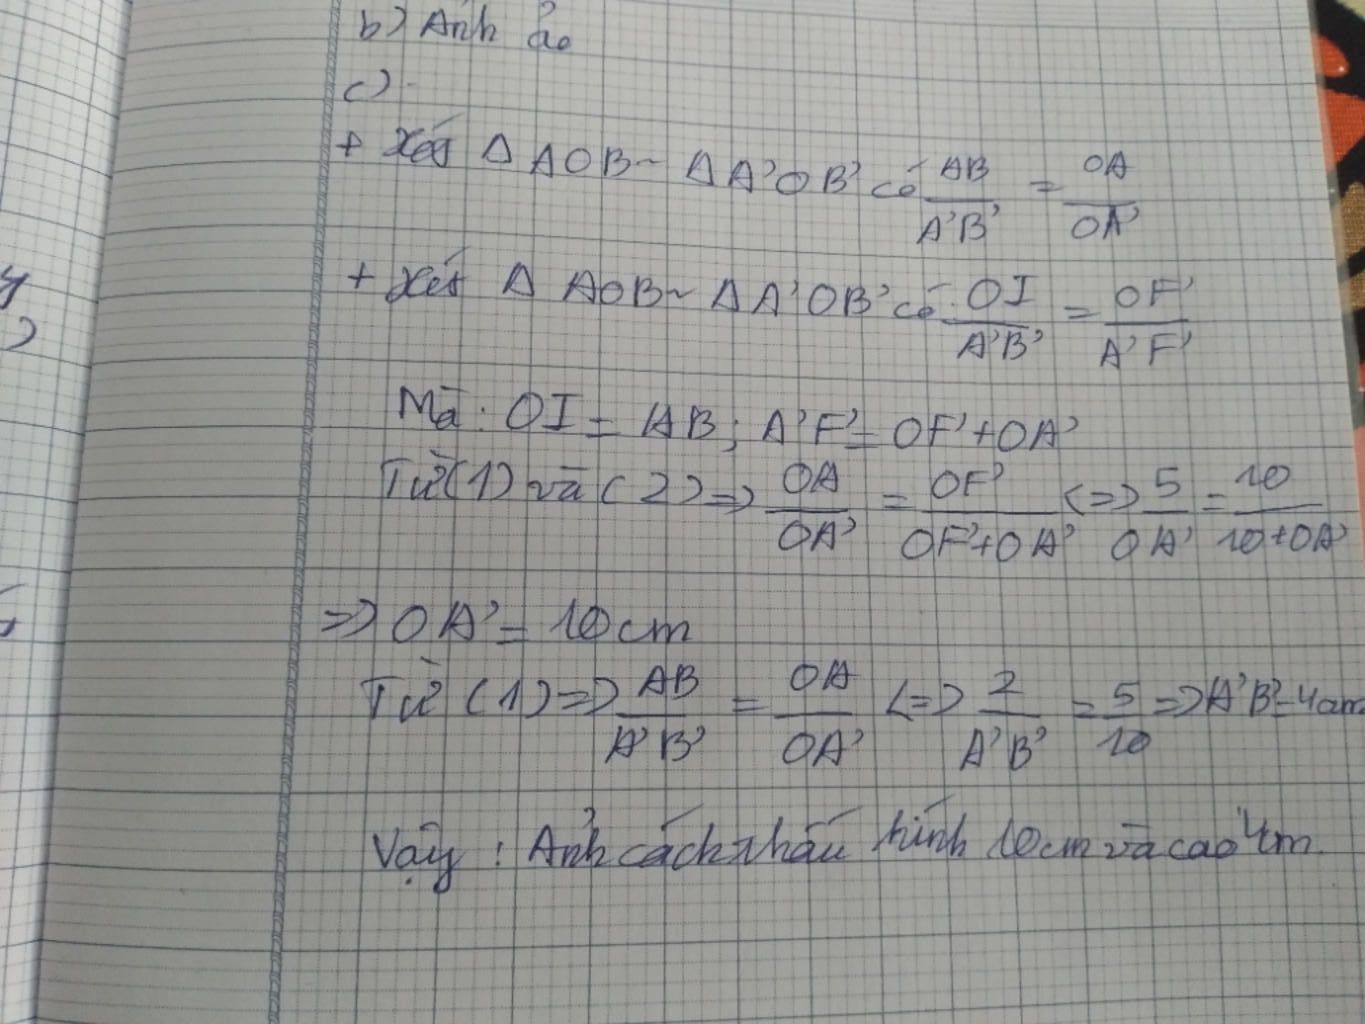 b) Ảnh ảo
c)
+ Xét Δ AOB ~ Δ A'OB' có AB/A'B' = OA/OA'
+ Xét Δ AOB ~ Δ A'OB' có OI/A'B' = OF'/A'F'
Mà: OI = AB; A'F' = OF' + OA'
Từ (1) và (2) => OA/OA' = OF'/OF'+OA' <=> 5/OA' = 10/10+OA'
=> OA' = 10cm
Từ (1) => AB/A'B' = OA/OA' <=> 2/A'B' = 5/10 => A'B' = 4cm
Vậy: Ảnh cách thấu kính 10cm và cao 4cm.